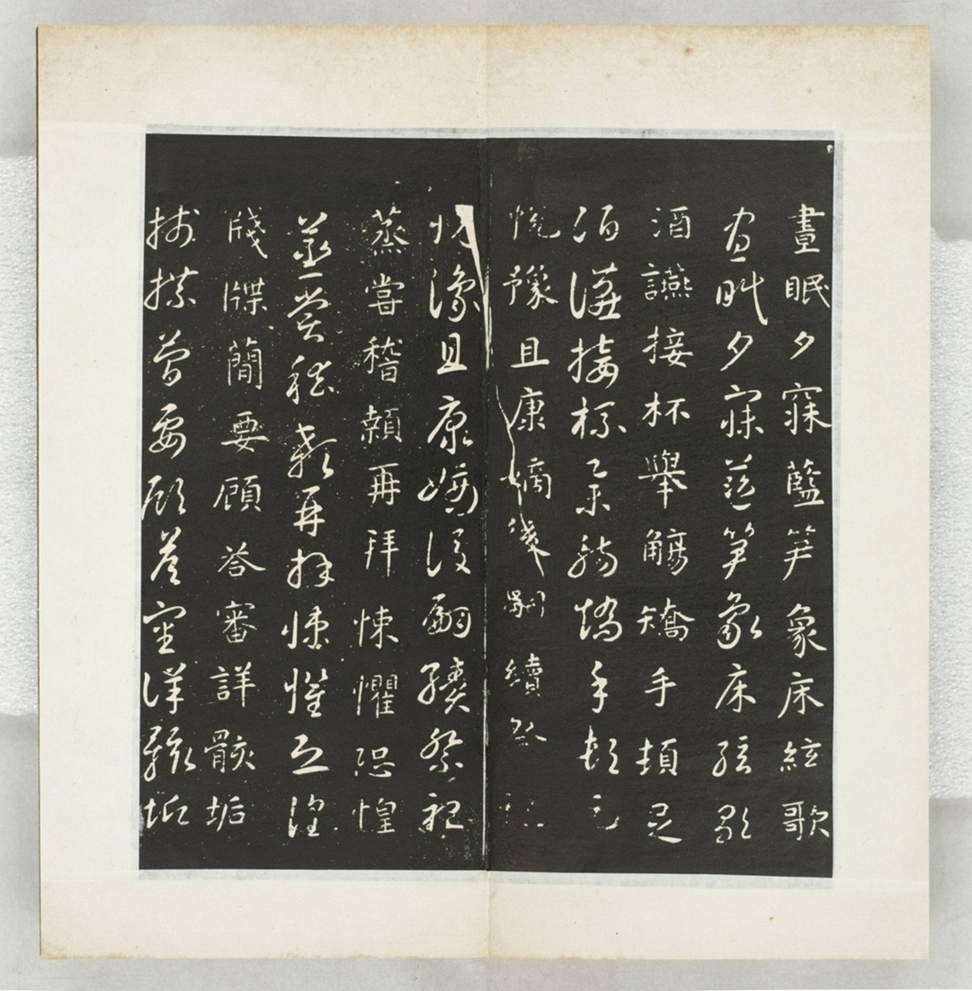 晝眠夕寐藍笋象床絃歌
晝眠夕寐藍笋象床絃歌
酒讌接杯舉觴矯手頓足
酒讌接杯舉觴矯手頓足
悅豫且康嫡後嗣續祭祀
悅豫且康嫡後嗣續祭祀
蒸嘗稽顙再拜悚懼恐惶
蒸嘗稽顙再拜悚懼恐惶
牋牒簡要顧荅審詳骸垢
牋牒簡要顧荅審詳骸垢